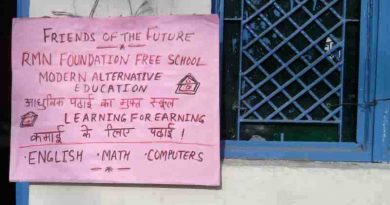 FRIENDS OF THE FUTURE
RMN FOUNDATION FREE SCHOOL
MODERN ALTERNATIVE
EDUCATION
आधुनिक पढ़ाई का मुफ्त स्कूल
LEARNING FOR EARNING
कमाई के लिए पढ़ाई !
· ENGLISH · MATH · COMPUTERS